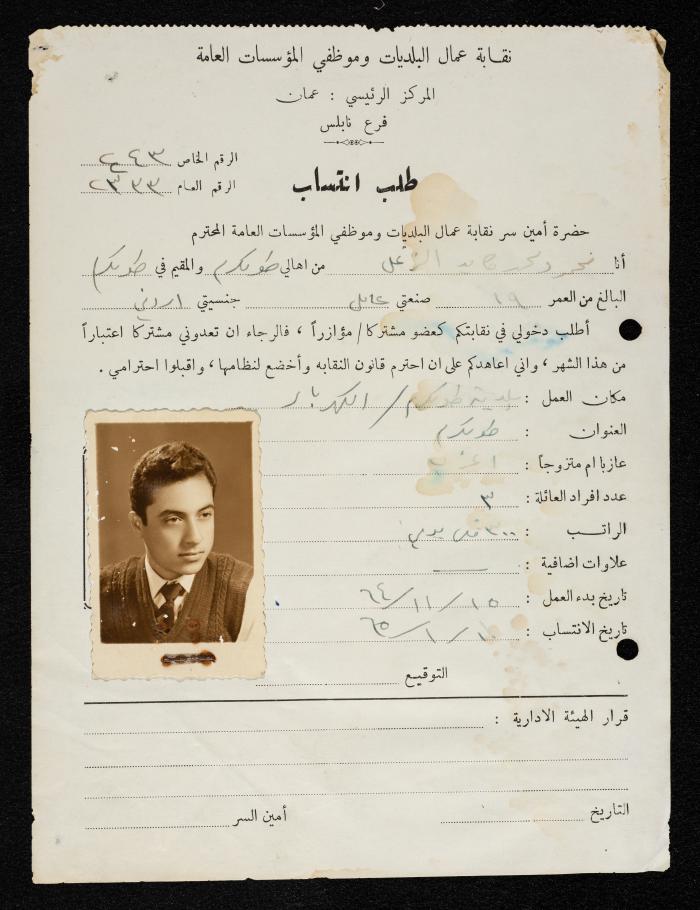 نقابة عمال البلديات وموظفي المؤسسات العامة
المركز الرئيسي : عمان
فرع نابلس
الرقم الخاص ٢٤٣
الرقم العام ٢٣٣٣
طلب انتساب
حضرة أمين سر نقابة عمال البلديات وموظفي المؤسسات العامة المحترم
أنا من اهالي طولكرم والمقيم في طولكرم
البالغ من العمر ١٩ صنعتي عامل جنسيتي اردني
أطلب دخولي في نقابتكم كعضو مشتركا/ مؤازراً ، فالرجاء ان تعدوني مشتركا اعتباراً
من هذا الشهر ، واني اعاهدكم على ان احترم قانون النقابه وأخضع لنظامها ، واقبلوا احترامي .
مكان العمل : بلدية طولكرم / الكهرباء
العنوان : طولكرم
عازبا ام متزوجاً : اعزب
عدد افراد العائلة : ٣
الراتب : ٣٠٠ فلس يومي
علاوات اضافية :
تاريخ بدء العمل : ١٥/١١/٦٤
تاريخ الانتساب : ١/١/٦٥
التوقيع
قرار الهيئة الادارية :
التاريخ أمين السر